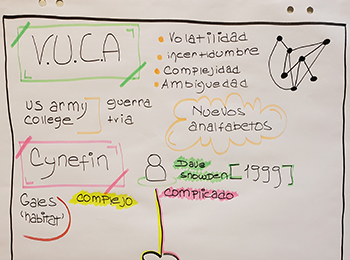 V.U.C.A
• Volatilidad
• incertidumbre
• Complejidad
• Ambigüedad
US army college ] guerra tria
Nuevos analfabetos
Cynefin
Dave Snowden [1999]
Gales 'habitat'
complejo
complicado